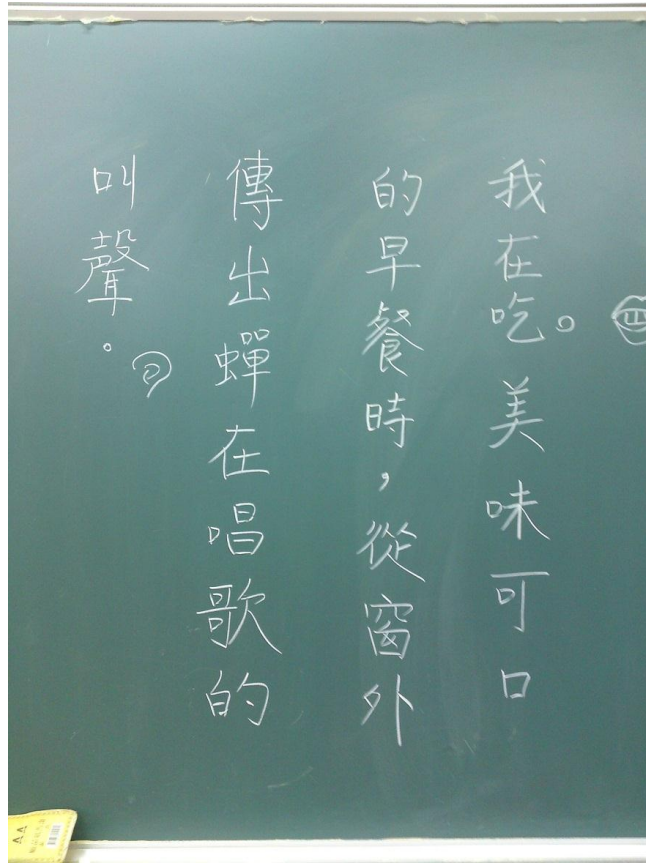 我在吃。美味可口
的早餐時，從窗外
傳出蟬在唱歌的
叫聲。
四
AA